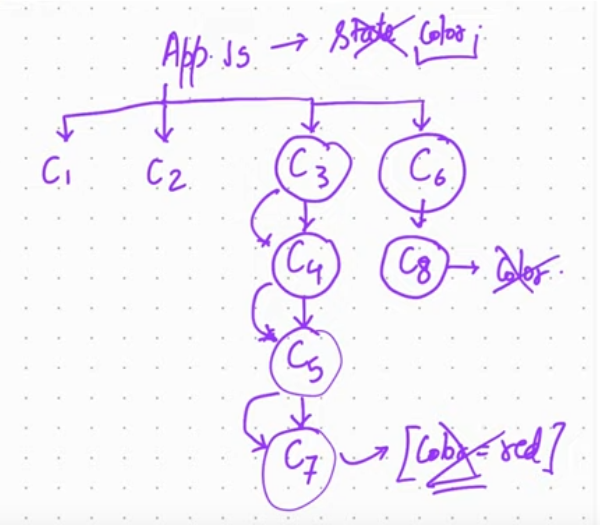 App.Js → State Color;
C1 C2 C3 C6
C4 C8 → Color.
C5
C7 → [Color = red]